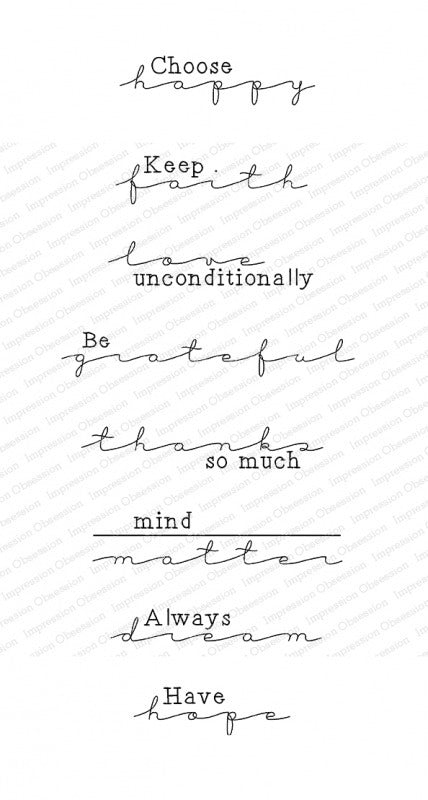 Choose
happy
Keep
faith
love
unconditionally
Be
grateful
thanks
so much
mind
matter
Always
dream
Have
hope
Impression Obsession